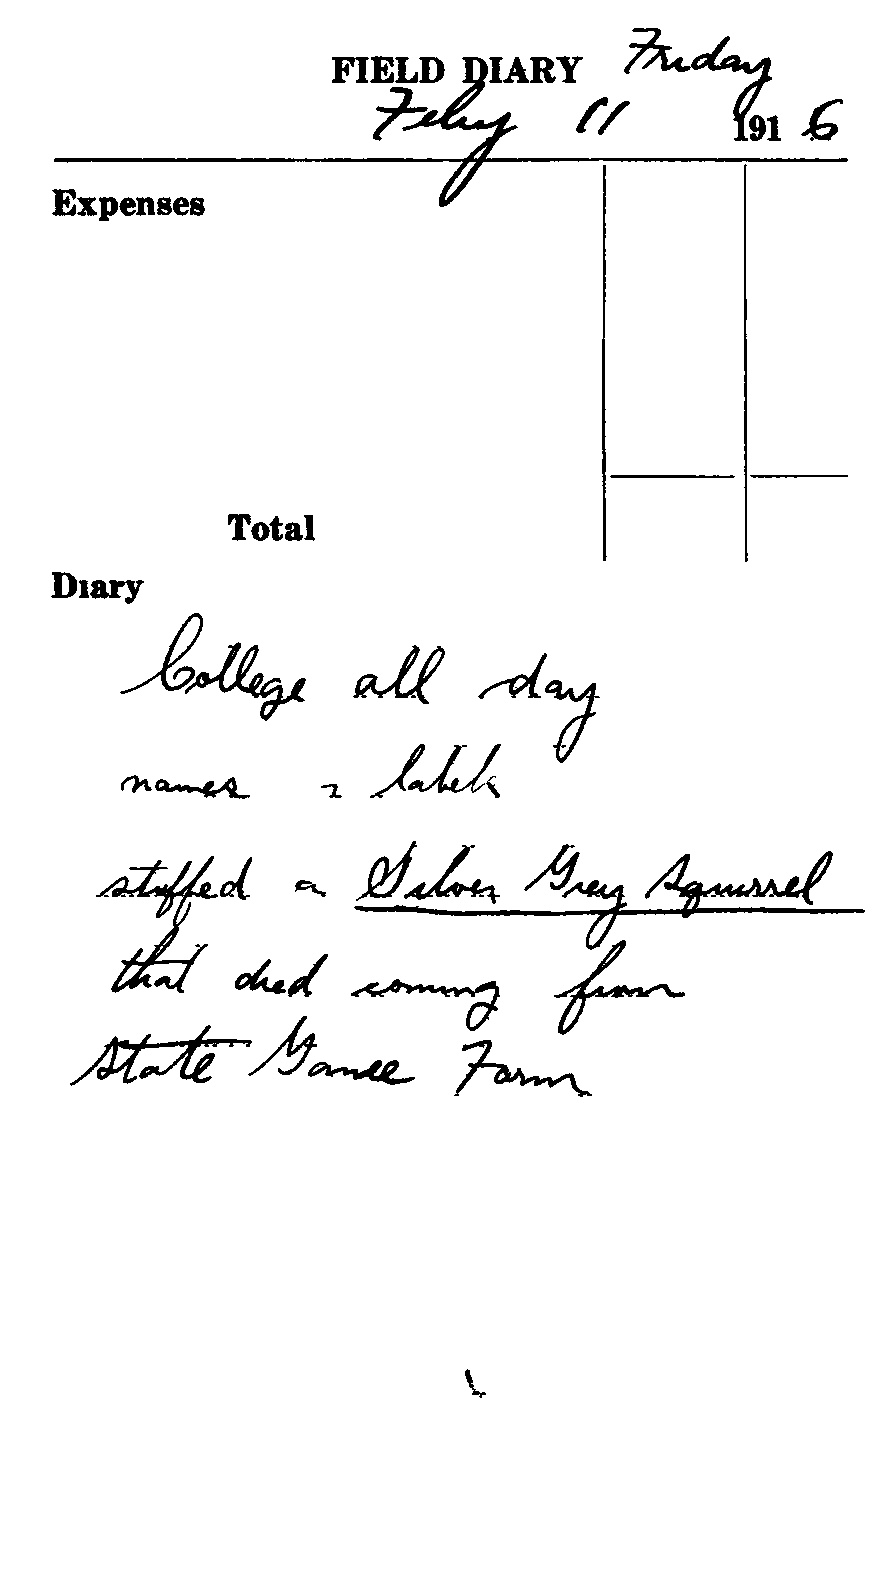 FIELD DIARY Friday
Feby 11 1916
Expenses
Total
Diary
College all day
names & labels
stuffed a Silver Grey Squirrel
that died coming from
State Game Farm